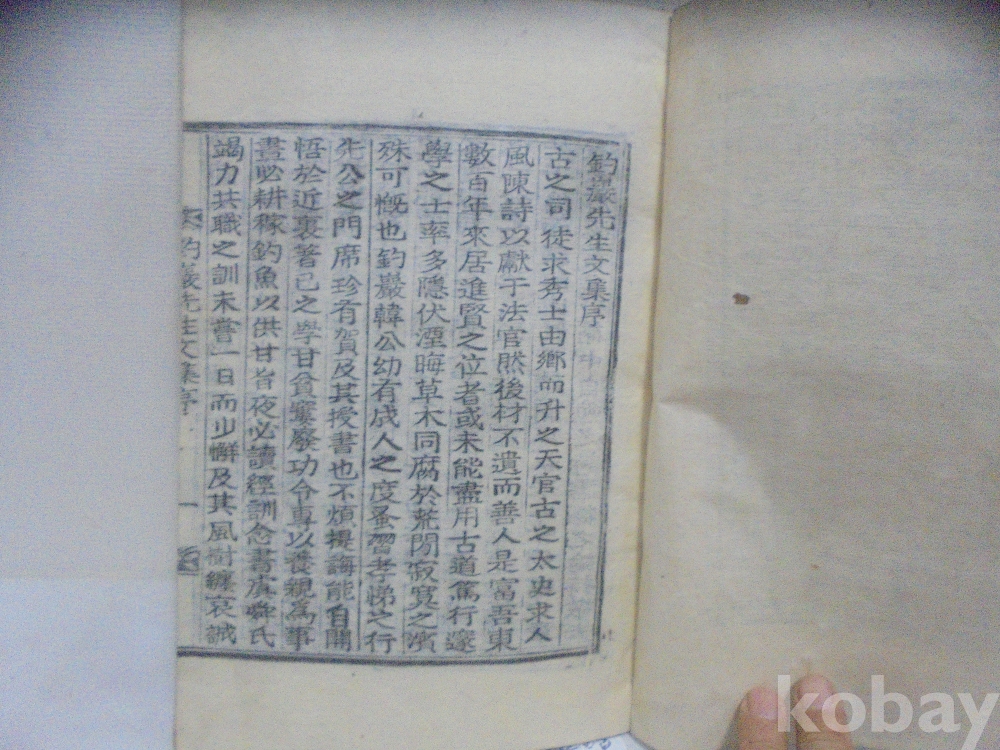 釣巖先生文集序
古之司徒求秀士由鄕而升之天官古之太史求人
風陳詩以獻于法官然後材不遺而善人是富吾東
數百年來居進賢之位者或未能盡用古道篤行邃
學之士率多隱伏湮晦草木同腐於荒閒寂寞之濱
殊可慨也釣巖韓公幼有成人之度蚤習孝悌之行
先公之門席珍有賀及其授書也不煩提誨能自開
悟於近裏著己之學甘貧窶廢功令專以養親為事
晝必耕稼釣魚以供甘旨夜必讀經訓念書虞舜氏
竭力共職之訓未嘗一日而少懈及其風樹纏哀誠
釣巖先生文集序
一
kobay